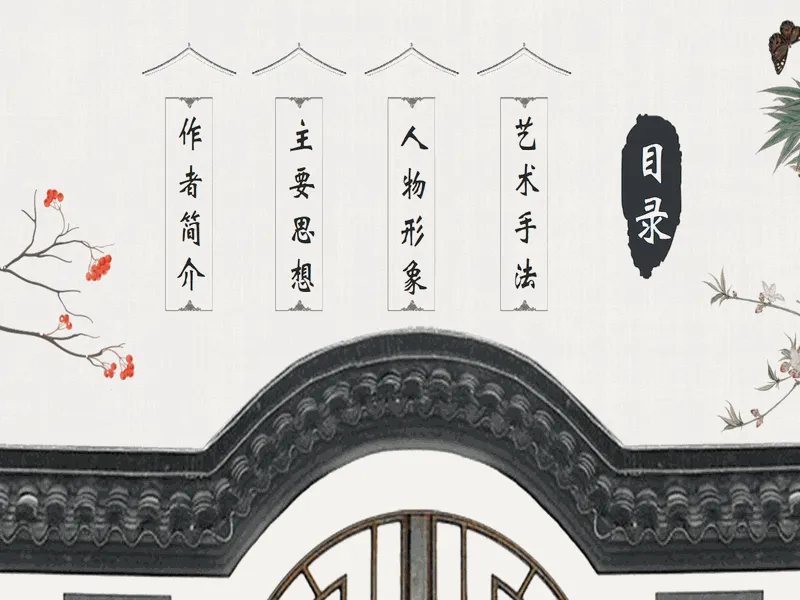 目录
作者简介
主要思想
人物形象
艺术手法